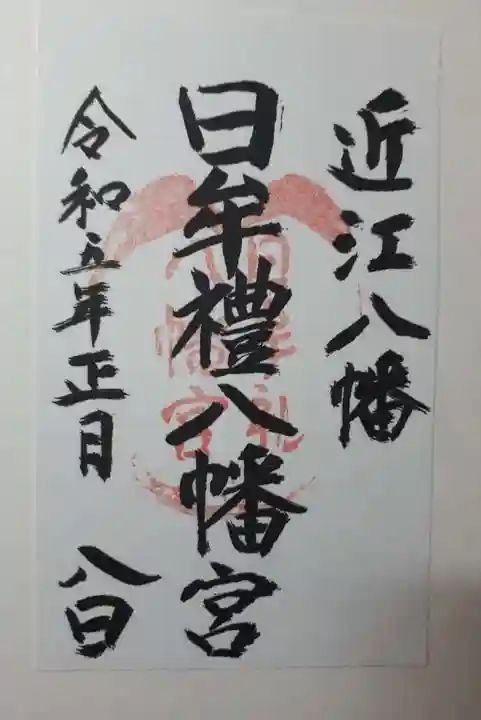 近江八幡
日牟禮八幡宮
令和五年正月 八日
日牟礼
八幡宮